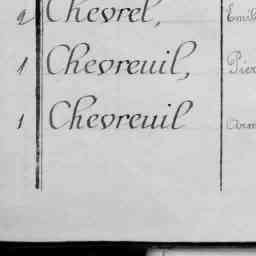 2 Chevrel, Emil
1 Chevreuil, Pier
1 Chevreuil